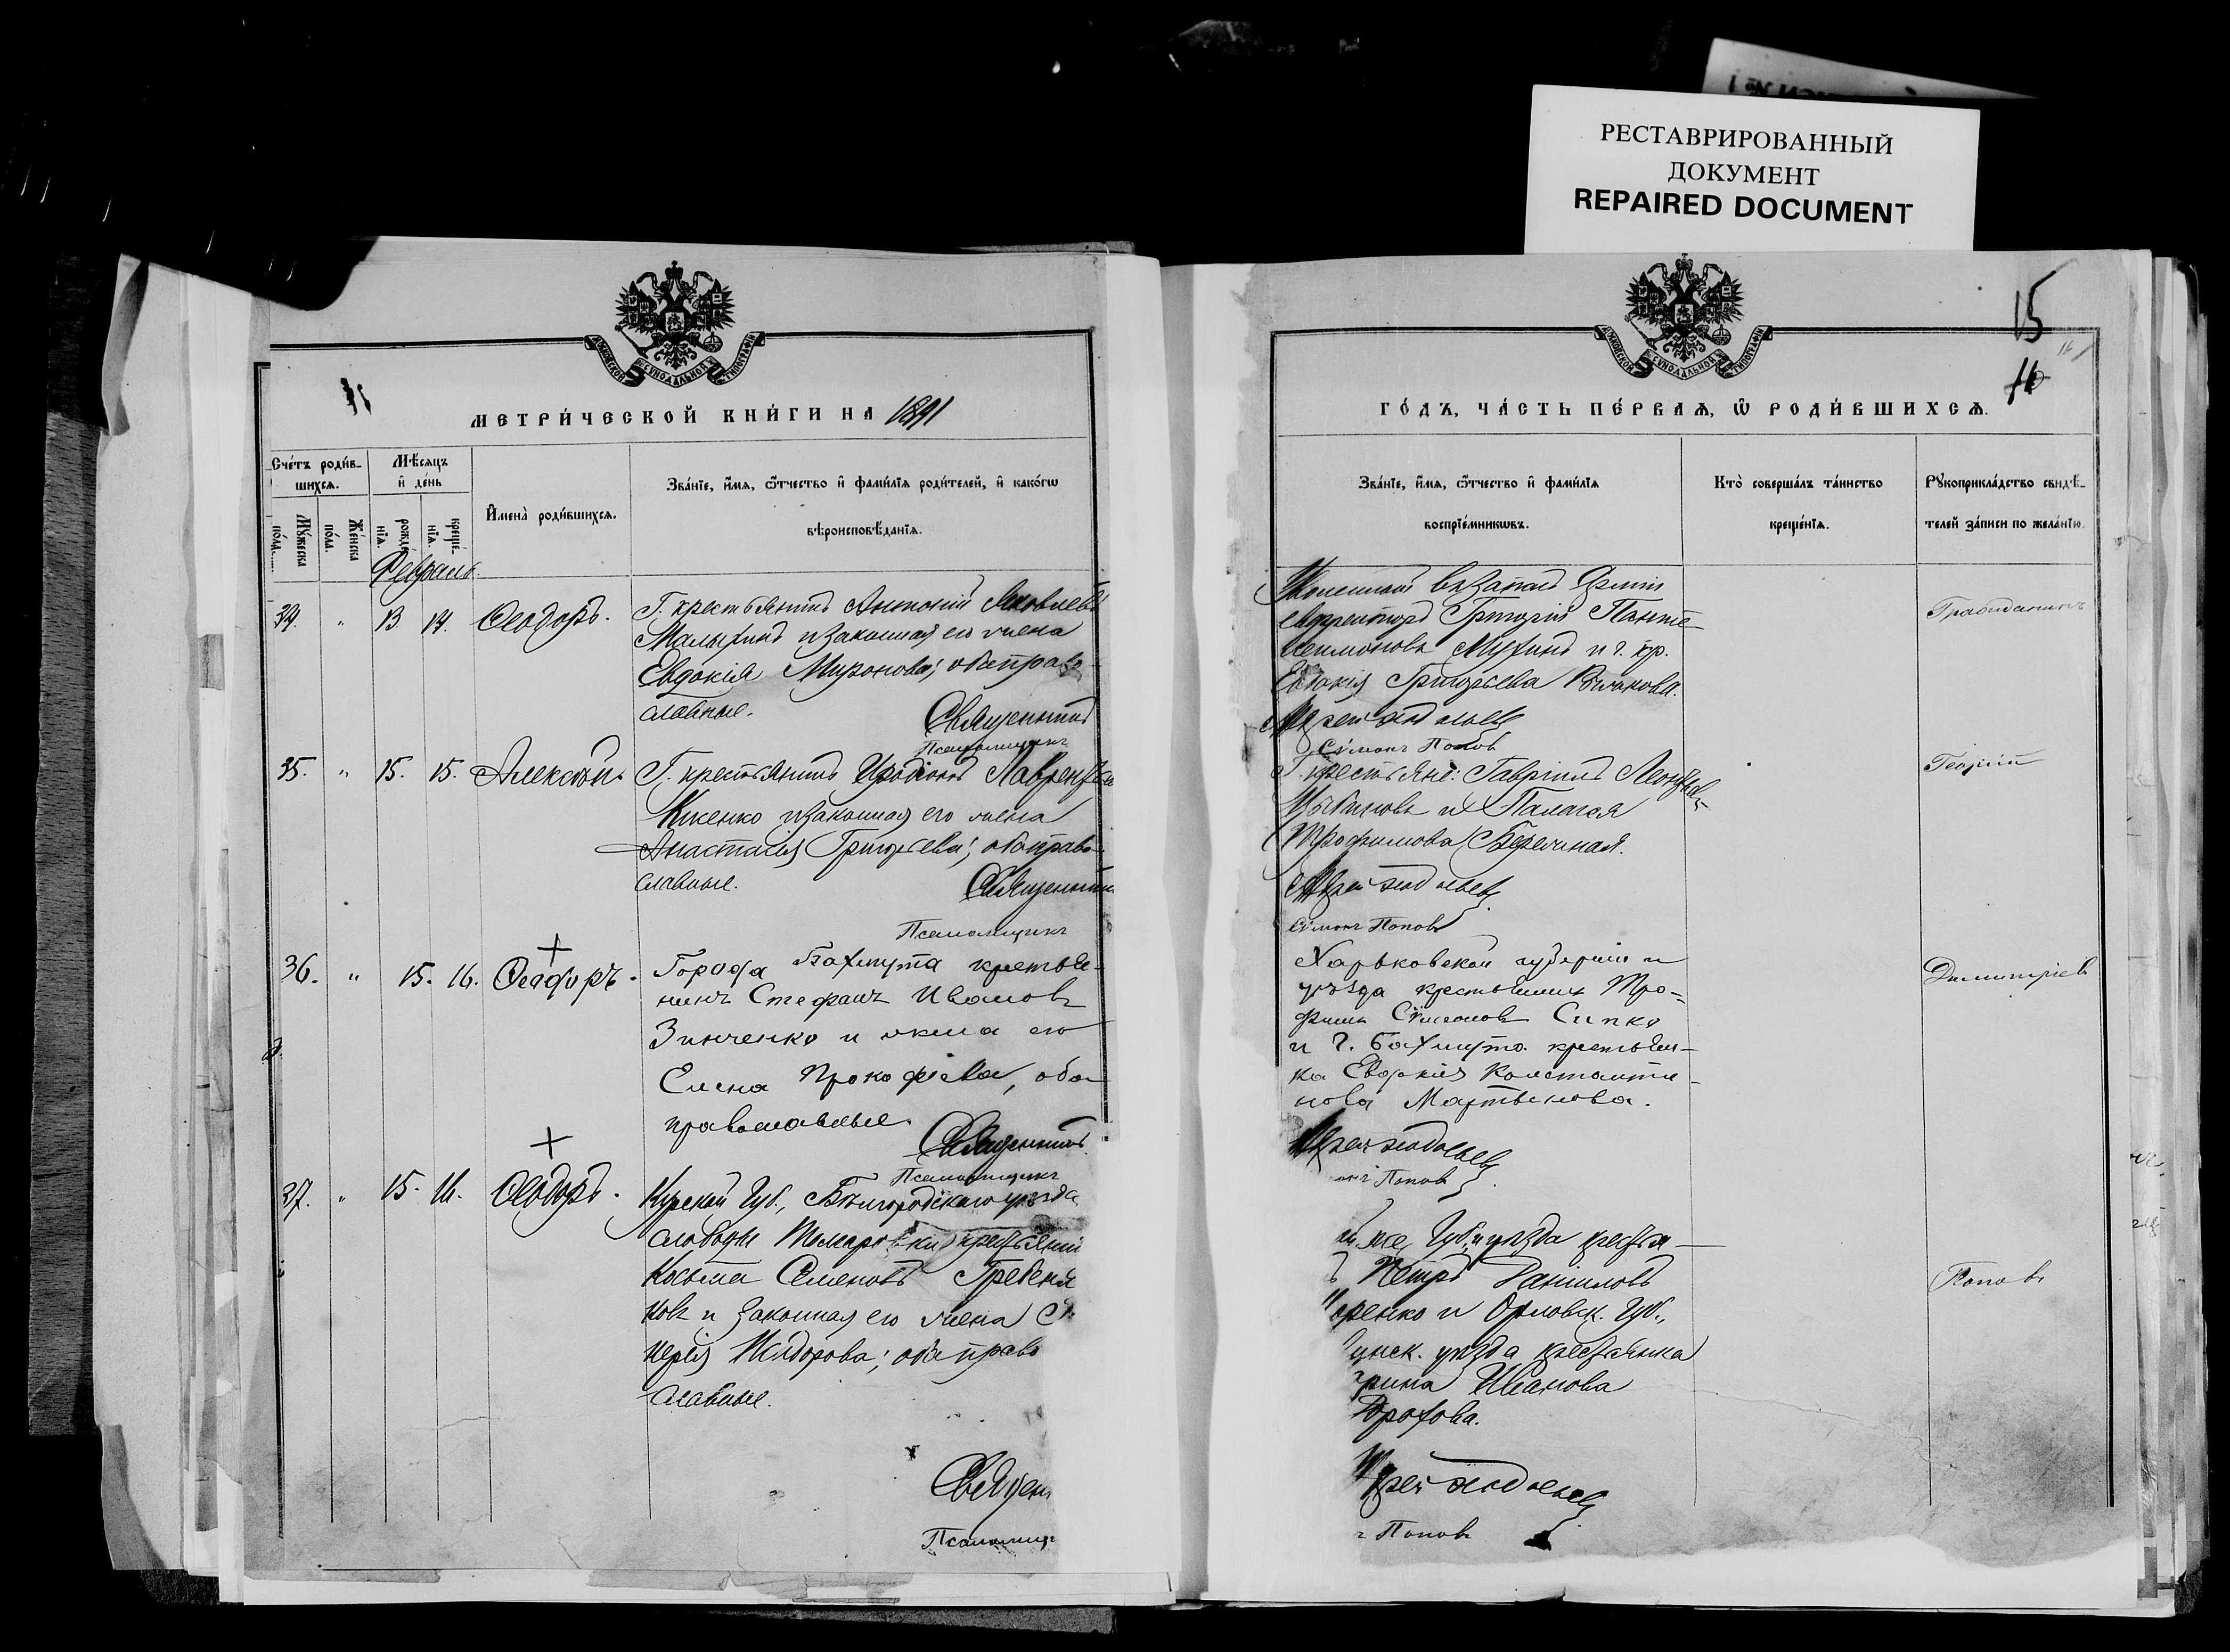 РЕСТАВРИРОВАННЫЙ
ДОКУМЕНТ
REPAIRED DOCUMENT
МЕТРИ́ЧЕСКОЙ КНИ́ГИ НА 1891
Сче́тъ роди́в-
шихся.
Мѣ́сяцъ
и҆ де́нь
Мꙋ́жеска
по́ла.
Же́нска
по́ла.
рожде́-
нїя.
креще́-
нїя.
И҆мена̀ роди́вшихся.
Зва́нїе, и҆́мя, ѻ҆́тчество и҆ фами́лїя роди́телей, и҆ како́гѡ
вѣроисповѣ́данїя.
Февраль.
34. " 13 14. Ѳеодоръ.
Г. крестьянинъ Антоній Яковлевъ
Малыхинъ и законная его жена
Евдокія Миронова; оба право-
славные.
Священникъ
Псаломщикъ
35. " 15. 15. Алексѣй.
Г. крестьянинъ Иродіонъ Лаврентьевъ
Кикенко и законная его жена
Анастасія Григорьева; оба право-
славные.
Священникъ
Псаломщикъ
36. " 15. 16. Ѳеодоръ.
Города Бахмута крестья-
нинъ Стефанъ Ивановъ
Зинченко и жена его
Елена Прокофіева, оба
православные.
Священникъ
Псаломщикъ
37. " 15. 16. Ѳеодоръ.
Курской Губ., Бѣлгородскаго уѣзда
слободы Томаровки крестьянин
Косьма Семеновъ Гребени
ковъ и законная его жена
Исидорова; оба право
славные.
Священ
Псаломщ
15
16
ГО́ДЪ, ЧА́СТЬ ПЕ́РВАЯ, Ѽ РОДИ́ВШИХСЯ.
Зва́нїе, и҆́мя, ѻ҆́тчество и҆ фами́лїя
воспрїе́мникѡвъ.
Кто̀ соверша́лъ та́инство
креще́нїя.
Рꙋкоприкла́дство свидѣ́-
телей за́писи по жела́нїю.
ефрейторъ Григорій Панте-
леимоновъ Мухинъ и г. кр.
Евдокія Григорьева
Гражданинъ
Сѵмонъ Поповъ
Г. крестьяне: Гавріилъ Леонтьев
Цыбаковъ и Палагея
Трофимова Бережная.
Георгій
Сѵмонъ Поповъ
Харьковской губерніи и
уѣзда крестьянинъ Тро-
фимъ Сѵмеоновъ Сипко
и г. Бахмута крестьян-
ка Евдокія Константи-
нова Мартынова.
Димитріев
Поповъ
Губ. и уѣзда крестья-
Петръ Даниловъ
аренко и Орловск. Губ.,
уѣзда крестьянка
Иванова
Дорохова.
Поповъ
Поповъ